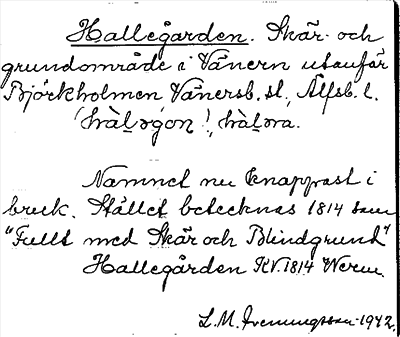 Hallegården. Skär- och
grundområde i Vänern utanför
Björkholmen Vänersb. sl., Älfsb. l.
Namnet nu knappast i
bruk. Stället betecknas 1814 som
"Fullt med Skär och Blindgrund"
Hallegården KV. 1814 Wern.
L. M. 1942.